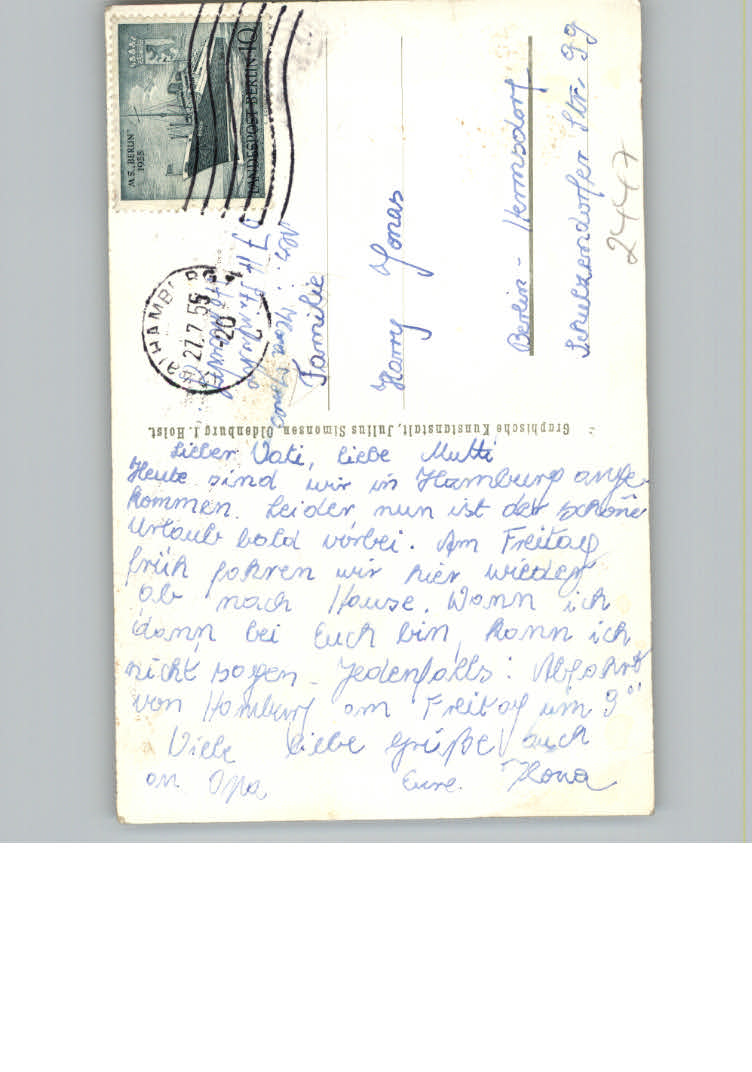 Lieber Vati, liebe Mutti
Heute sind wir in Hamburg ange-
kommen. Leider nun ist der schöne
Urlaub bald vorbei. Am Freitag
früh fahren wir hier wieder
ab nach Hause. Wann ich
dann bei Euch bin, kann ich
nicht sagen. Jedenfalls: Abfahrt
von Hamburg am Freitag um 9°°
Viele liebe Grüße auch
an Opa Eure Ilona
Graphische Kunstanstalt, Julius Simonsen, Oldenburg i. Holst.
M.S. „BERLIN"
1955
LANDESPOST BERLIN 10
HAMB
27.7.55
-20
Abs.: Jonas
Familie
Harry Jonas
Berlin-Hermsdorf
Schulzendorfer Str. 99
2447